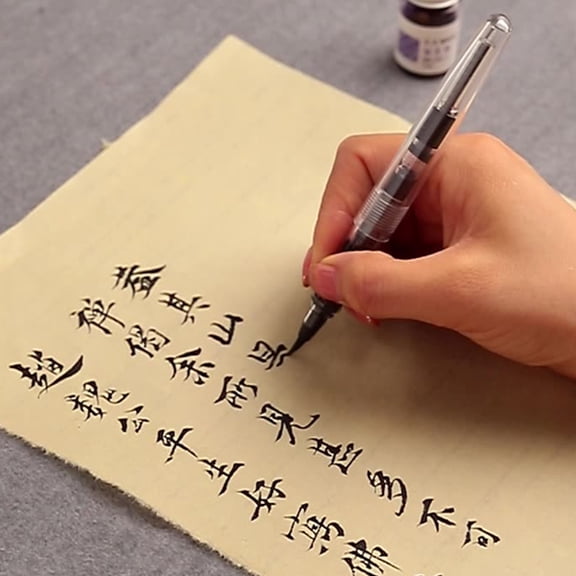 趙魏公平生好寫佛
禅偈余所見甚多不可
蓋其山